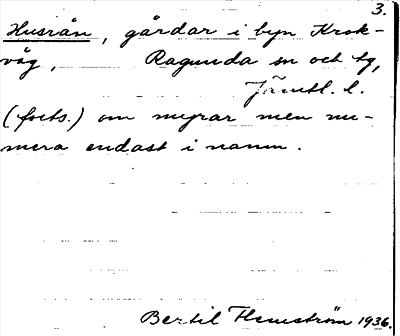 3.
Husrån, gårdar i byn Krok-
våg, Ragunda sn och tg,
Jämtl. l.
(forts.) om myrar men nu-
mera endast i namn.
Bertil Flemström 1936.